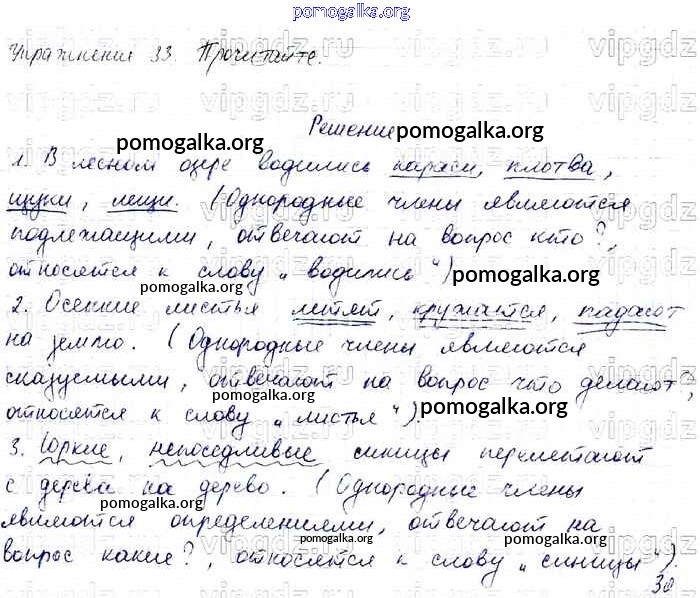 pomogalka.org
Упражнения 33. Прочитайте.
Решение pomogalka.org
pomogalka.org
1. В лесном озере водились караси, плотва,
щуки, лещи. (Однородные члены являются
подлежащими, отвечают на вопрос кто?,
относятся к слову „водились“) pomogalka.org
2. Осенние листья летят, кружатся, падают
pomogalka.org
на землю. (Однородные члены являются
сказуемыми, отвечают на вопрос что делают?,
относятся к слову „листья“). pomogalka.org
3. Юркие, непоседливые синицы перелетают
с дерева на дерево. (Однородные члены
pomogalka.org
являются определениями, отвечают на
pomogalka.org
вопрос какие?, относятся к слову „синицы“).
pomogalka.org
30